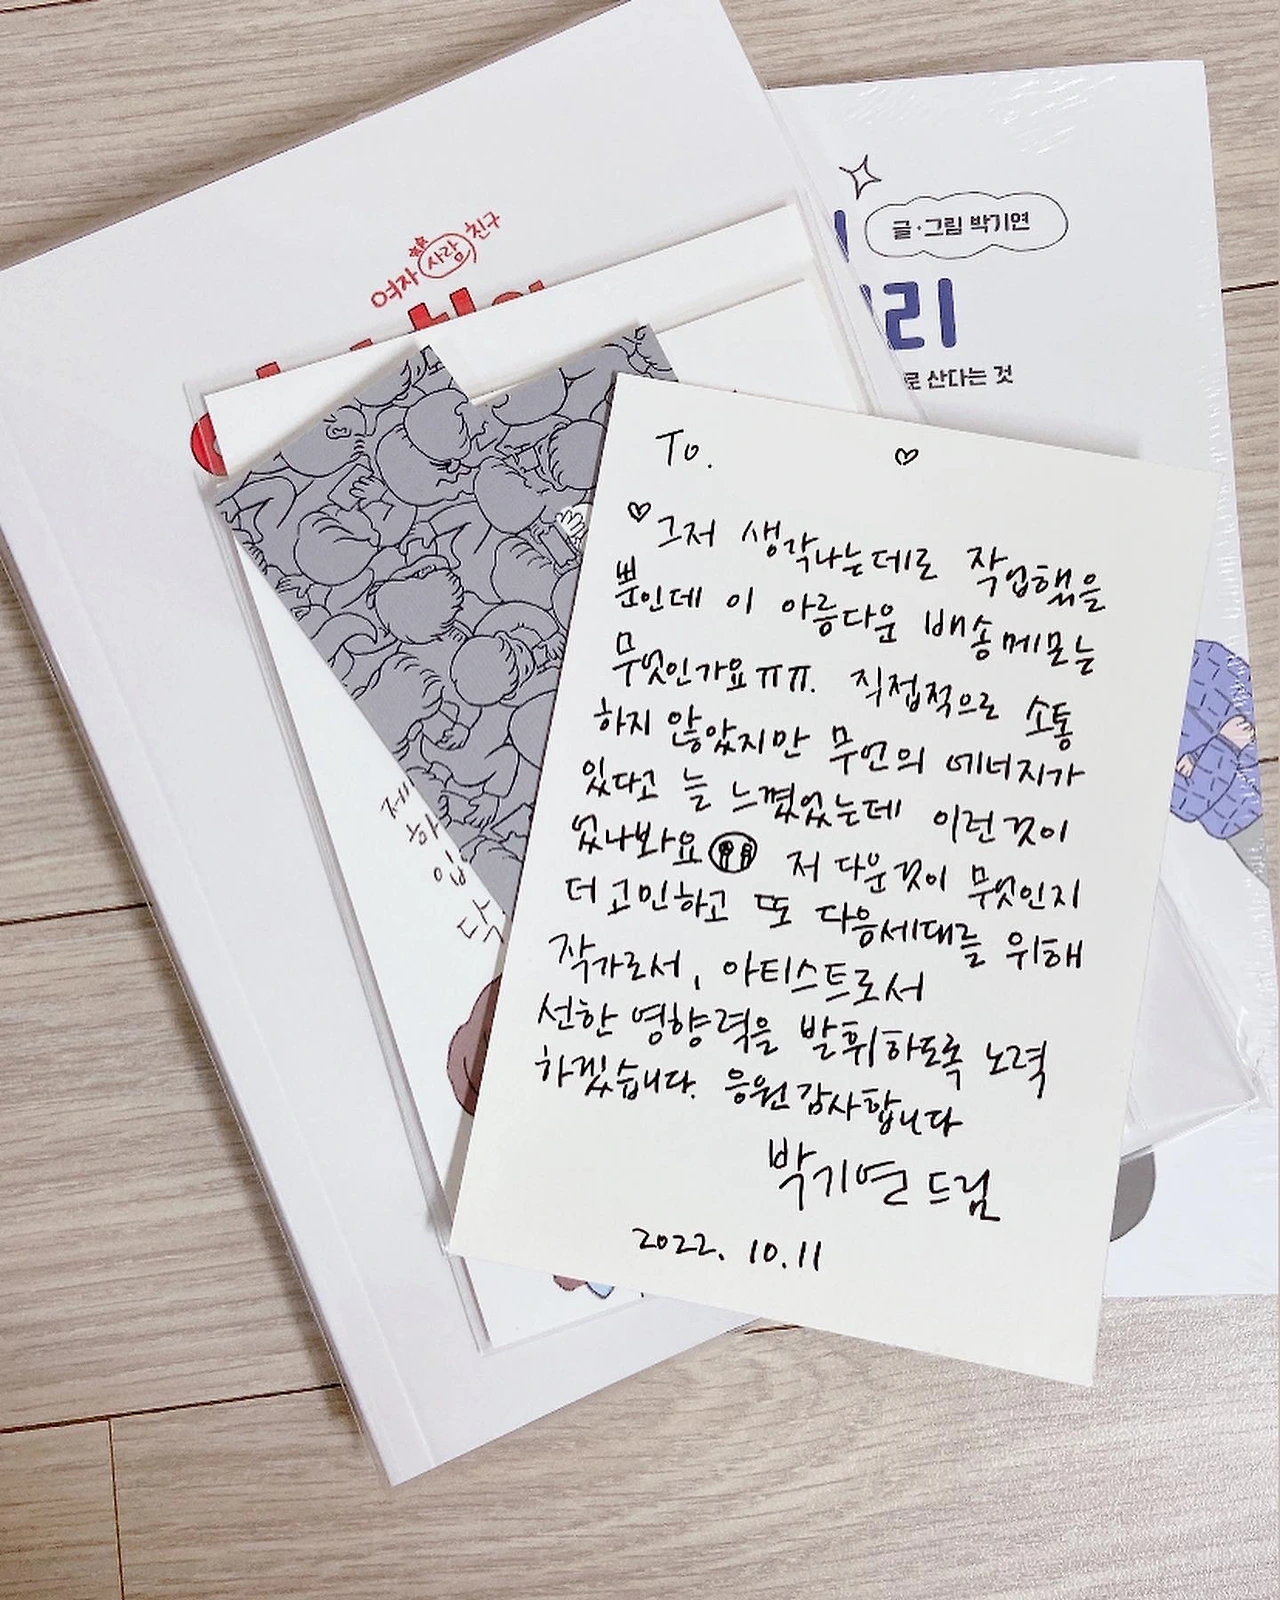 여자 사람 친구
글·그림 박기연
리
로 산다는 것
To. ♡
♡ 그저 생각나는데로 작업했을
뿐인데 이 아름다운 배송메모는
무엇인가요ㅠㅠ. 직접적으로 소통
하지 않았지만 무언의 에너지가
있다고 늘 느꼈었는데 이런것이
었나봐요 저 다운것이 무엇인지
더 고민하고 또 다음세대를 위해
작가로서, 아티스트로서
선한 영향력을 발휘하도록 노력
하겠습니다. 응원감사합니다
박기연 드림
2022. 10. 11